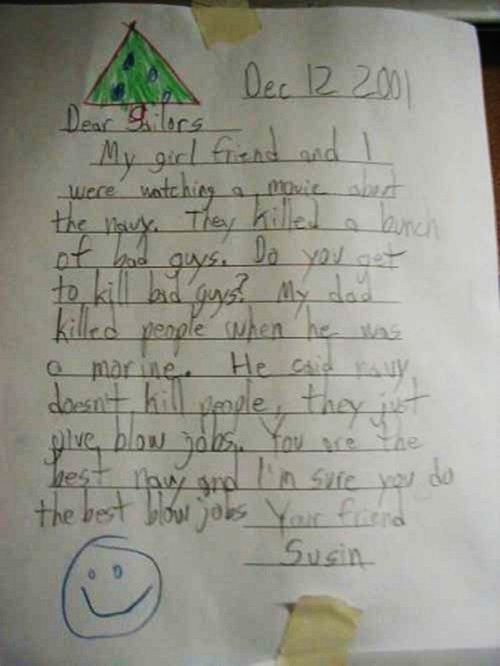 Dec 12 2001
Dear Sailors
My girl friend and I
were watching a movie abert
the navy. They killed a bunch
of bad guys. Do you get
to kill bad guys? My dad
killed people when he was
a marine. He said navy
doesn't kill people, they just
give blow jobs. You are the
best navy and I'm sure you do
the best blow jobs Your friend
Susin